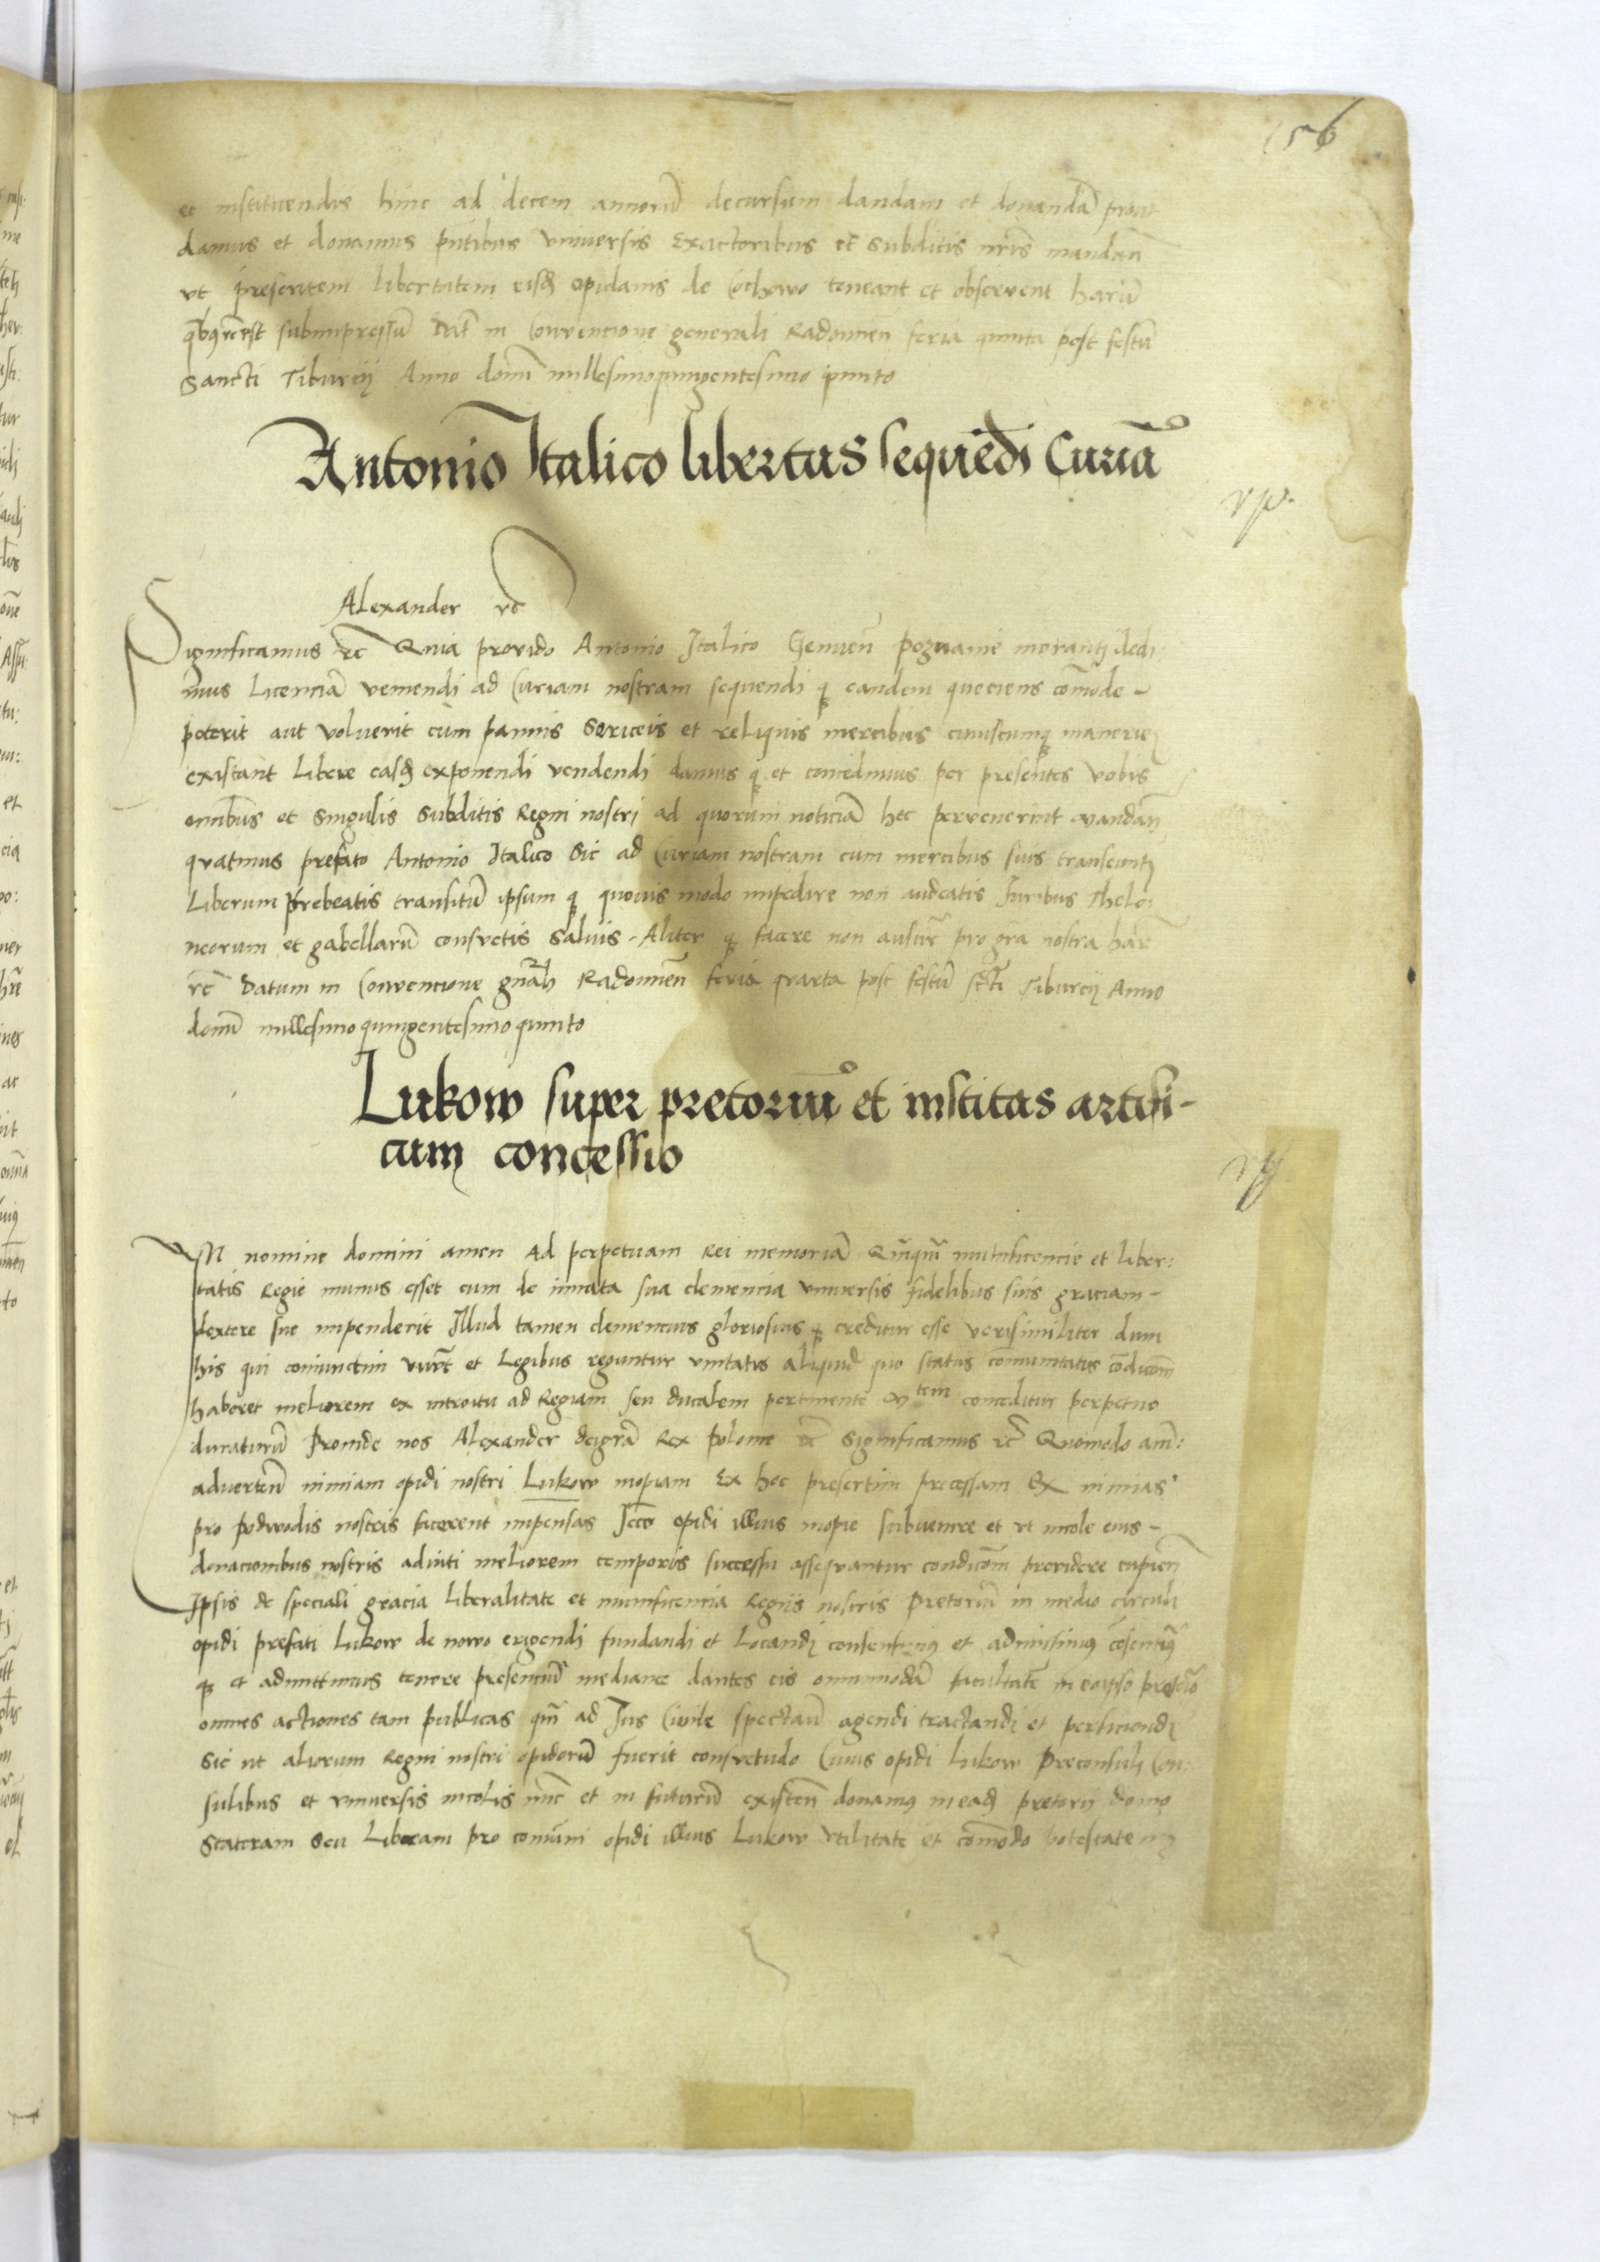 156
et instituendis hinc ad decem annorū decursum dandam et donandā prout
damus et donamus pn̄tibus vniuersis Exactoribus et subditis nr̄is mandan̄
vt presentem libertatem eisdem opidanis de Cochowo teneant et obseruent harū
subimpressū Dat̄ in Conuencione generali Radomien feria quinta post festū
Sancti Tiburcij Anno domī millesimoquingentesimo quinto
Antonio Italico libertas sequēdi Curiā
Alexander rc̄
Significamus rc̄ Quia prouido Antonio Italico Genuen̄ Poznanie moranti dedi:
mus Licenciā veniendi ad Curiam nostram sequendi q eandem queciens cōmode -
poterit aut voluerit cum pannis Sericeis et reliquis mercibus cuiuscumq maneriei
existant Libere easdem exponendi vendendi damus q et concedimus per presentes vobis
omībus et singulis Subditis Regni nostri ad quorum noticiā hec peruenerint mandan̄
quatinus prefato Antonio Italico Sic ad Curiam nostram cum mercibus suis transeunti
Liberum prebeatis transitū ipsum q quouis modo impedire non audeatis Iuribus Thelo:
neorum et gabellarū consuetis saluis - Aliter q facere non ausur̄ pro gr̄a nostra har̄
rc̄ Datum in Conuencione gn̄ali Radomien̄ feria quarta post festū Scti Tiburcij Anno
domī millesimo quingentesimo quinto
Lukow super pretoriū et institas artifi-
cum concessio
IN nomine domini amen Ad perpetuam Rei memoriā Qn̄quā munificencie et liber:
tatis Regie munus esset cum de innata sua clemencia vniuersis fidelibus suis graciam -
dextere sue impenderit Illud tamen clemencius gloriosius q creditur esse verisimiliter dum
his qui coniunctim viuūt et Legibus reguntur vnitatis aliquid quo status cōmunitatis cōdicōem
haberet meliorem ex introitu ad Regiam seu ducalem pertinente conceditur perpetuo
duraturū Proinde nos Alexander deigrā Rex Polonie rc̄ Significamus rc̄ Quomodo ani:
aduerten̄ nimiam opidi nostri Lukow inopiam Ex hoc presertim processam Ex nimias
pro podwodis nostris facerent impensas Icc̄o opidi illius inopie subuenire et vt incole eius -
donacionibus nostris adiuti meliorem temporis successu assequantur condicōm prouidere cupien̄
Ipsis de speciali gracia liberalitate et munificencia Regiis nostris Pretoriū in medio circuli
opidi prefati Lukow de nouo erigendi fundandi et Locandi consentimus et admittimus cōsentimq
q et admittimus tenore presenciū mediante dantes eis omnimodā facultatē in eoipso pretorio
omnes actiones tam publicas qm̄ ad Ius Ciuile spectan̄ agendi tractandi et perficiendi
Sic ut aliorum Regni nostri opidorū fuerit consuetudo Cuius opidi Lukow Preconsuli Con:
sulibus et vniuersis incolis nūc et in futurū existen̄ donamus in eadem pretorij domo
Stateram seu Libram pro comūni opidi illius Lukow vtilitate et cōmodo potestatem